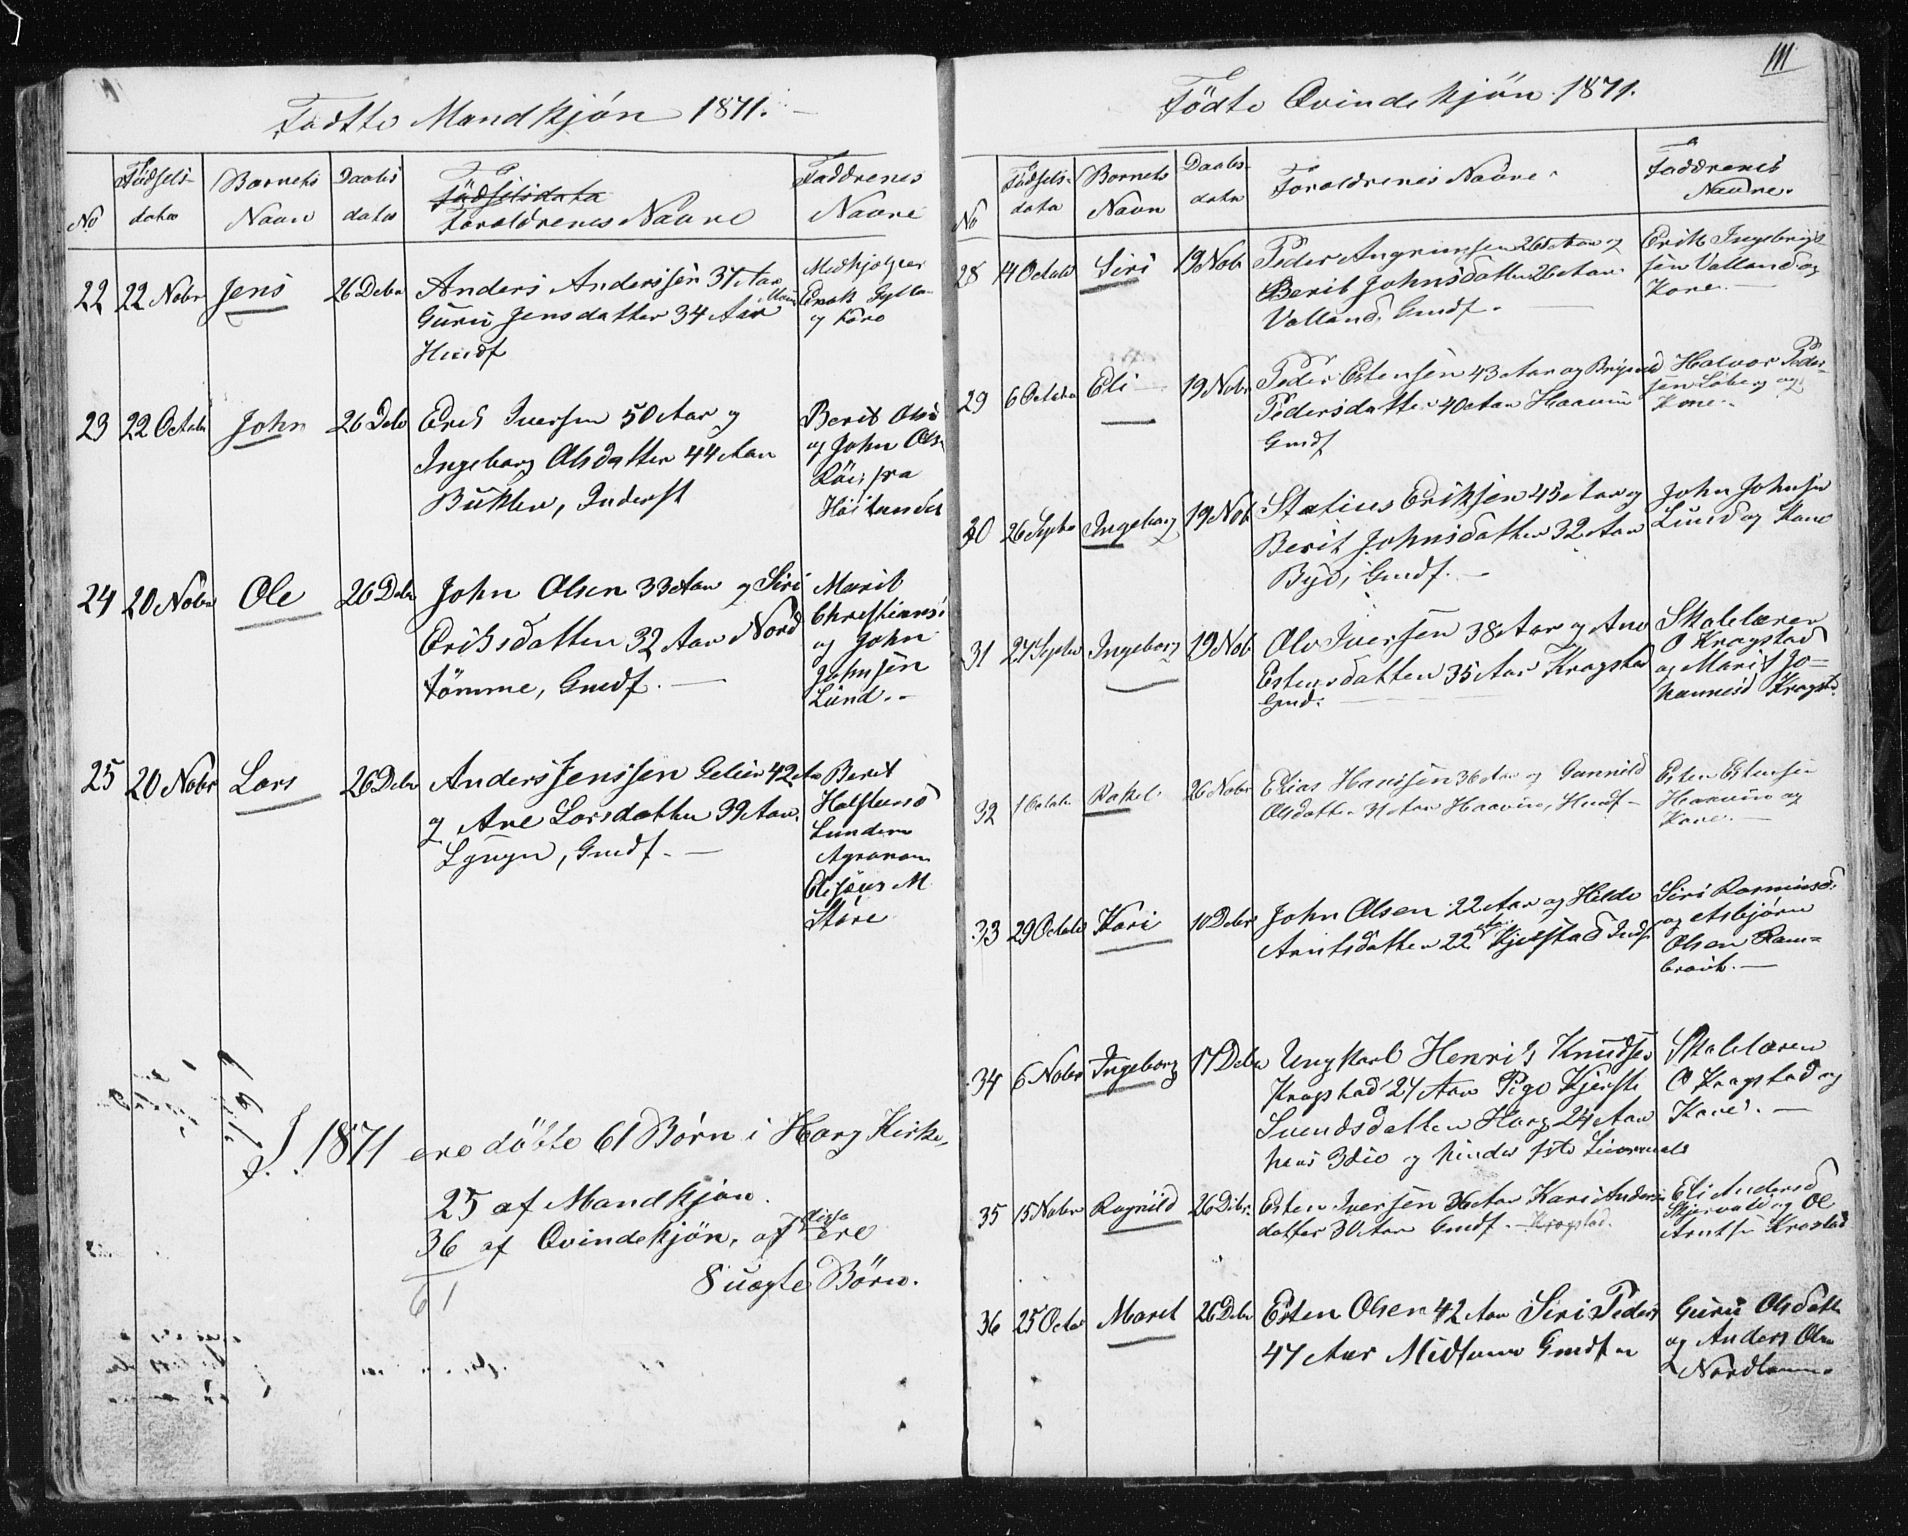 Födtte Mandkjön 1871.
No
Födsels-
data
Barnets
Navn
Daabs
data
Födselsdata
Foraldrenes Navne
Faddrenes
Navne
22
22 Nobr
Jens
26 Debr
Anders Anderssen 37 Aar
Guru Jensdatter 34 Aar
Husdf
og Kone
23
22 Octobr
John
26 Debr
Erik Iversen 50 Aar og
Ingeborg Olsdatter 44 Aar
Inderst
Berit Olsd
og John Ols
fra
24
20 Nobr
Ole
26 Debr
John Olsen 33 Aar og Siri
Eriksdatter 32 Aar Nord
tömme, Gmdf.
Marit
Christians
og John
Johnsen
Lund.
25
20 Nobr
Lars
26 Debr
Anders Jenssen 42 Aar
og Ane Larsdatter 39 Aar
Gmdf.
Berit
Agronom
M
Störe
I 1871 ere döbte 61 Börn i Horg Kirke,
25 af Mandkjön.
36 af Qvindekjön, af disse ere
61
8 uægte Börn.
111
Födte Qvindekjön 1871.
No
Födsels-
data
Barnets
Navn
Daabs-
data
Foraldrenes Navne
Faddrenes
Navne.
28
14 Octobr
Siri
19 Nobr
Peder Angrimsen 26 Aar og
Berit Johnsdatter 26 Aar
Volland, Gmdf.
Erik Ingebrigt
sen Volland og
Kone.
29
6 Octobr
Eli
19 Nobr
Peder Estensen 43 Aar og
Pedersdatter 40 Aar Haavin
Gmdf
Halvor Peder-
sen Soberg og
Kone.
30
26 Septbr
Ingeborg
19 Nob
Statius Eriksen 45 Aar og
Berit Johnsdatter 32 Aar
Gmdf.
John Johnsen
Lund og Kone
31
27 Septbr
Ingeborg
19 Nob
Ole Iversen 38 Aar og Ane
Estensdatter 35 Aar Kragstad
Gmd.
Skolelærer
O Kragstad
og Marit Jo-
hannesd Kragst.
32
1 Octobr
Rakel
26 Nobr
Elias Hansen 36 Aar og Gunnild
Olsdatter 31 Aar Haavin, Husdf
Esten Estensen
Haavin og
Kone.
33
29 Octobr
Kari
10 Debr
John Olsen 22 Aar og Hilde
Arntsdatter 22 Aar Kjelstad Inds
Siri Rasmusd.
og Asbjörn
Olsen Ram-
braut.
34
6 Nobr
Ingeborg
17 Debr
Ungkarl Henrik Knudsen
Kragstad 27 Aar Pige Kjersti
Svendsdatter Horg 24 Aar
hans 3die og hindes 1ste Leiermaal
Skolelæren
O Kragstad og
Kone.
35
15 Nobr
Ragnild
26 Debr.
Esten Iversen 36 Aar Kari Anders
datter 30 Aar Gmdf. Kragstad.
Eli Andersd
Skjervold og Ole
Arntsen Krastad
36
25 Octobr
Maret
26 Debr
Esten Olsen 42 Aar Siri Peders
47 Aar Gmdf
Guru Olsdatt
og Anders Olsen
Nordtömme